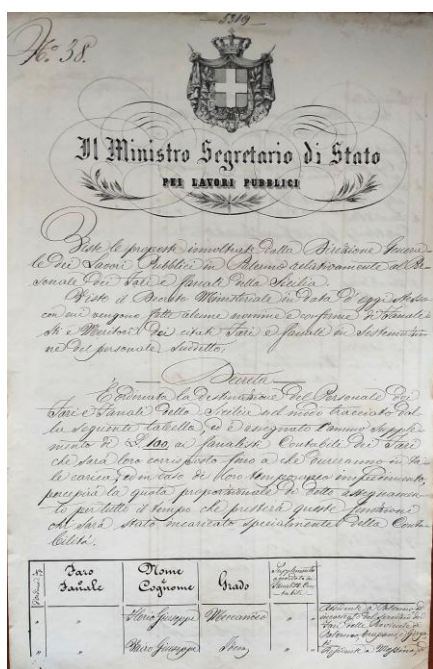 5319
N.° 38.
Il Ministro Segretario di Stato
PEI LAVORI PUBBLICI
Viste le proposte innoltrate dalla Direzione Genera-
le dei Lavori Pubblici in Palermo relativamente al Per-
sonale dei Fari e fanali della Sicilia.
Visto il Decreto Ministeriale in data d'oggi stesso
con cui vengono fatte alcune nomine e conferme di Fanali-
sti e Meccanici dei citati Fari e fanali in
ne del personale suddetto;
Decreta
È ordinata la destinazione del Personale dei
Fari e Fanali della Sicilia nel modo tracciato dal-
la seguente tabella, ed è assegnato l'annuo supple-
mento di L. 100, ai fanalisti Contabili dei Fari
che sarà loro corrisposto fino a che dureranno in ta-
le carica, ed in caso di loro temporaneo impedimento,
percepirà la quota proporzionale di detto assegnamen-
to per tutto il tempo che presterà queste funzioni
chi sarà stato incaricato specialmente della Conta-
bilità.
Faro
Fanale
Nome
Cognome
Grado
Supplemento
Giuseppe Meccanico
Giuseppe Idem
Residente a Palermo ed
incaricato del servizio dei
Fari delle Provincie di
Palermo, Trapani e
Residente a Messina